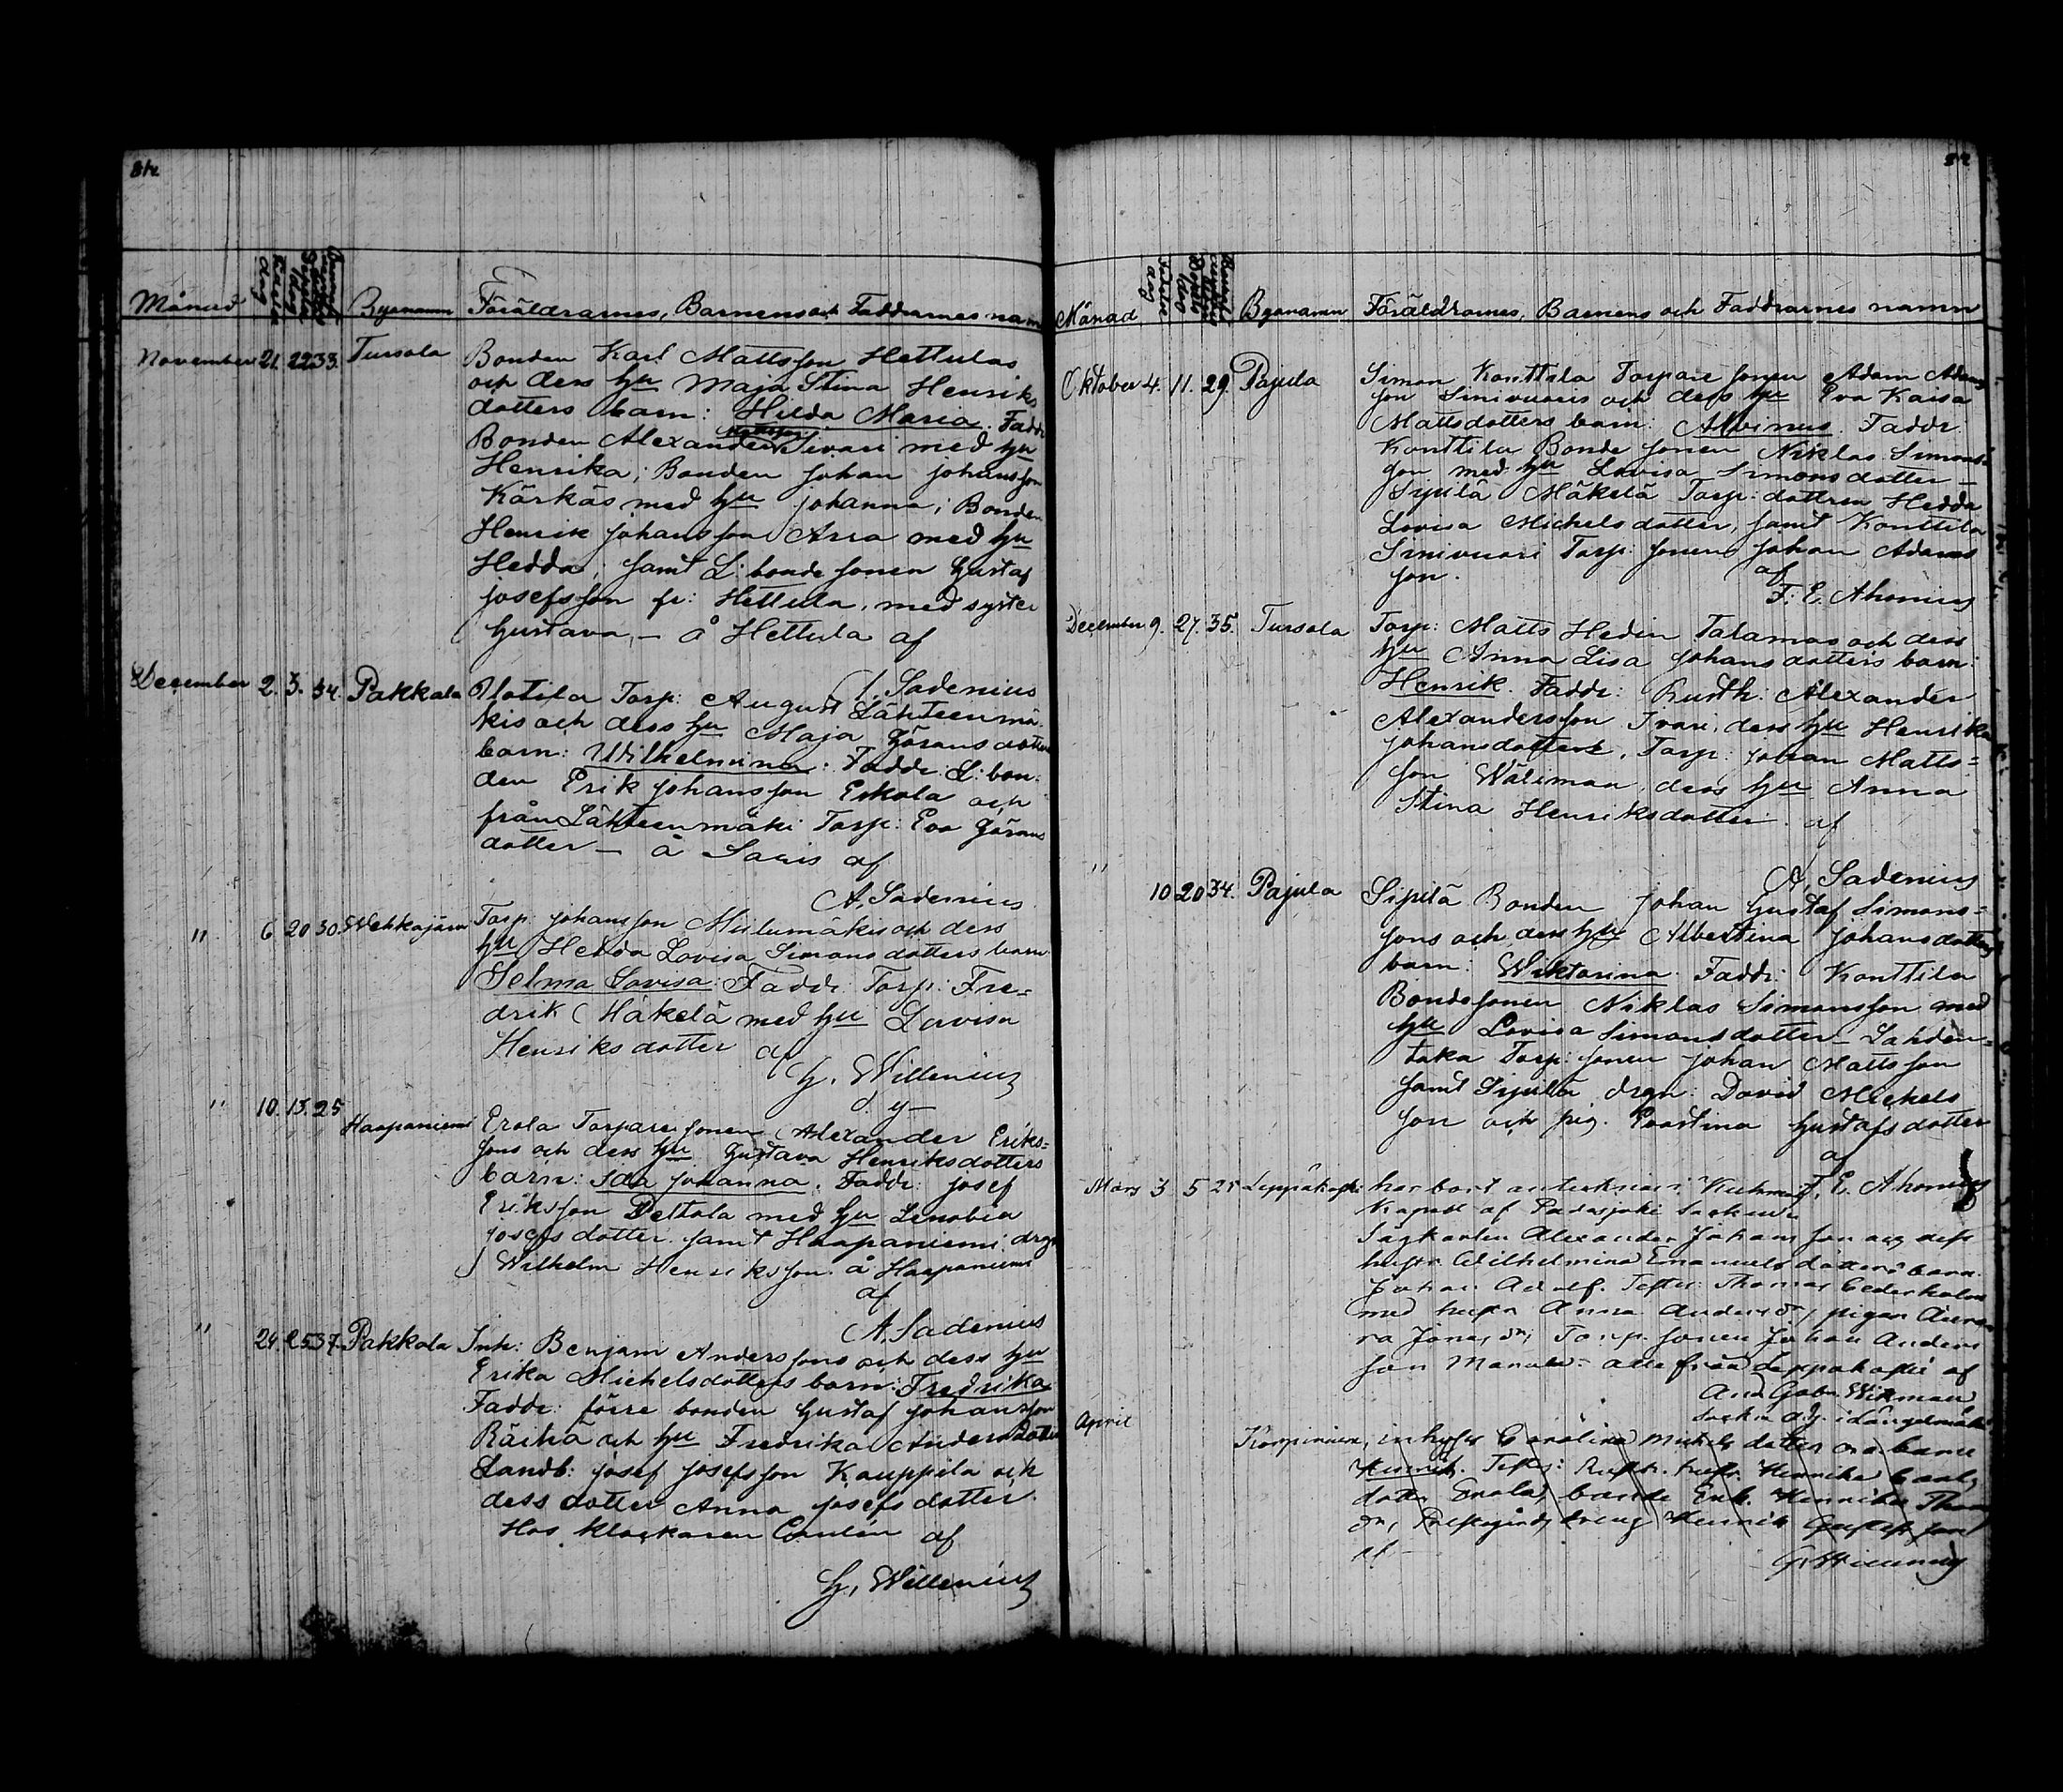 84
Månad Bynamn Föräldrarnes, Barnens och Faddrarnes namn
November 21. 22. 33. Tursola Bonden Karl Mattsson Hettulas
och dess hu Maja Stina Henriks
dotters barn: Hilda Maria. Faddr
Mattsson
Bonden Alexander Iivari med hu
Henrika; Bonden Johan Johansson
Kärkäs med hu Johanna; Bonden
Henrik Johansson Arra med hu
Hedda; samt L: bonde sonen Gustaf
Josefsson fr: Hettula, med syster
Gustava, — å Hettula af
A. Sadenius
December 2. 3. 34. Pakkala Ylotila Torp: August Lähteenmä-
kis och dess hu Maja Görans dotters
barn: Wilhelmina: Faddr: L: bon-
den Erik Johansson Eskola och
från Lähteenmäki Torp: Eva Görans
dotter — å Saris af
A. Sadenius
" 6 20 30. Wehkajärvi Torp: Johansson Miilumäkis och dess
hu Hedda Lovisa Simons dotters barn
Selma Lovisa: Faddr: Torp: Fre=
drik Mäkelä med hu Lovisa
Henriks dotter af
G. Willenius
" 10. 15. 25 Haapaniemi Erola Torpare sonen Alexander Eriks=
sons och dess hu Gustava Henriksdotters
barn: Ida Johanna. Faddr: Josef
Eriksson Peltola med hu Lenobia
Josefs dotter samt Haapaniemi drgn
Wilhelm Henriksson å Haapaniemi
af
A. Sadenius
" 24. 25 37. Pakkala Inh: Benjam Anderssons och dess hu
Erika Michelsdotters barn: Fredrika
Faddr: förre bonden Gustaf Johansson
Räihä och hu Fredrika Andersdotter
Landb: Josef Josefsson Kauppila och
dess dotter Anna Josefs dotter.
Hos klockaren Caulén af
G. Willenius
Månad Bynamn Föräldrarnes, Barnens och Faddrarnes namn
Oktober 4. 11. 29. Pajula Simon Konttila Torpare sonen Adam Adams
son Sinivuoris och dess hu Eva Kaisa
Mattsdotters barn: Albinus. Faddr
Konttila Bonde sonen Niklas Simons-
son med hu Lovisa Simonsdotter —
Sipilä Mäkelä Torp: dottren Hedda
Lovisa Michelsdotter, samt Konttila
Sinivuori Torp: sonen Johan Adams
son. af
F. E. Ahonius
December 9. 27. 35. Tursola Torp: Matts Hedin Talamas och dess
hu Anna Lisa Johans dotters barn:
Henrik. Faddr: Rusth: Alexander
Alexandersson Ivari, dess hu Henrika
Johansdotter, Torp: Johan Matts=
son Wälimaa, dess hu Anna
Stina Henriksdotter. af
A. Sadenius
" 10 20 34. Pajula Sipilä Bonden Johan Gustaf Simons=
sons och dess hu Albertina Johansdotters
barn: Wiktorina. Faddr: Konttila
Bondesonen Niklas Simonsson med
hu Lovisa Simonsdotter — Lahden=
taka Torp: sonen Johan Mattsson
samt Sipilä drgn: David Michels
son och pig. Eva Stina Gustafs dotter
af
F. E. Ahonius
Mars 3 5 25 Leppäkoski har bort antecknas i Kuhmois
Kapell af Padasjoki socken
Sågkarlen Alexander Johansson och dess
hustru Wilhelmina Emanuels dotters barn
Johan Adolf. Test: Thomas Cederholm
med hustru Anna Andersdr, pigan
Torp. sonen Johan Anders
son alla från Leppäkoski af
And. Gabr. Wikman
April Karpiniemi, inhyses Carolina Michels dotter barn
Henrik. Test: Rusth. hustr. Henrika
dotter Erola, bonde Erik Henriks
Prestgårds dreng Henrik Gustafsson
af —
G. Willenius